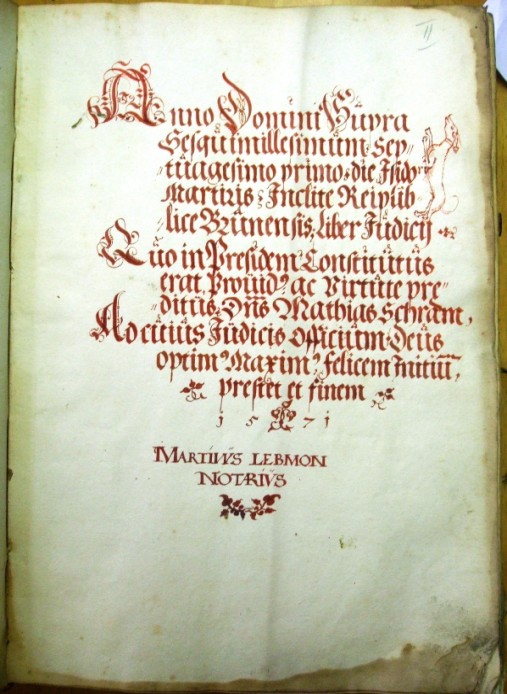 II
Anno Domini Supra
Sesquimillesimum Sep〃
tuagesimo primo: die Isidori
Martiris: Inclite Reipub〃
lice Brunensis, liber Iudicij
Quo in Presidem Constitutus
erat Provid⁹ ac Virtute pre〃
ditus, Dn̄s Mathias Schram,
Ad cuius Iudicis Officium Deus
optim⁹ Maxim⁹ felicem Initiū,
prestet et finem
1571
MARTINVS LEBMON
NOTARIVS